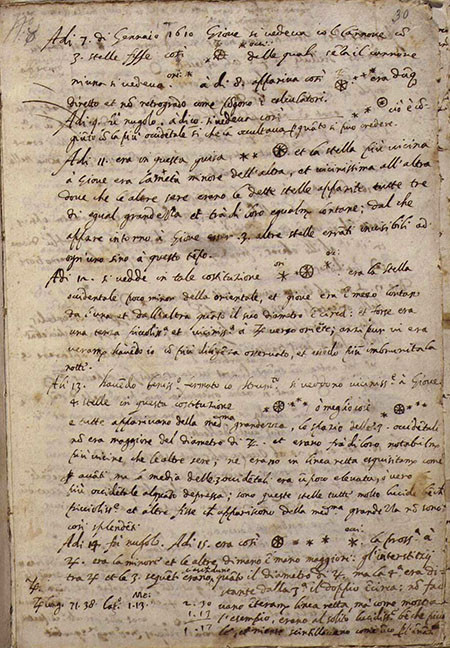 30
Adi 7. di Gennaio 1610 Giove si vedeva col Cannone co
3. stelle fisse così * ✱ * delle quali sēza il cannone
ori. occi.
niuna si vedeva. à dì 8. appariva così ✱ * * * era dūq
diretto et nō retrogrado come pōgono i calculatori.
Adì 9. fu nugolo. à dì 10. si vedeva così * * ✱ cioè cō-
giūto cō la più occidētale si che la occultava p quāto si può credere.
Adì 11. era in questa guisa * * ✱ et la stella più vicina
à Giove era la metà minore dell'altra, et vicinissima all'altra
dove che le altre sere erano le dette stelle apparite tutte tre
di egual grandezza et trà di loro egualm. lontane; dal che
appare intorno à Giove esser .3. altre stelle errāti invisibili ad
ogni uno sino à questo tēpo.
ori occi
Adì 12. si vedde in tale costituzione * ✱ * era la stella
occidentale poco minor della orientale, et giove era ī mezo lontano
da l'una et da l'altra quāto il suo diametro ī circa: et forse era
una terza piccolissᵃ et vicinissᵃ à ♃ verso oriēte; anzi pur vi era
veramēte havēdo io cō più diligēza osservato, et esēdo più imbrunita la
notte.
Adì 13. havēdo benissᵒ fermato lo strumᵗᵒ si veddono vicinissᵉ à Giove
4 stelle in questa costituzione * ✱ * * * ò meglio così
e tutte apparivano della medᵐᵃ grandezza, lo spazio delle 3. occidētali
nō era maggiore del diametro di ♃. et erano frà di loro notabilm.
più vicine, che le altre sere; ne erano in linea retta esquisitam. come
p avāti ma la media delle 3 occidētali era ū poco elevata, o vero
la più occidētale alquāto depressa; sono queste stelle tutte molto lucide bēche
picciolissᵉ et altre fisse che appariscono della medᵐᵃ grādezza nō sono
così splendēti
Adì 14. fu nugolo. Adì 15. era così ✱ * * * * la prossᵃ à
♃. era la minore et le altre di mano ī mano maggiori: gl'interstitij
tra ♃ et le 3. seguēti erano quāto il diametro di ♃. ma la 4ᵃ era di-
stante dalla 3ᵃ il doppio ī circa; nō fa-
♃ long. 71.38 lat. 1.13. 2.30 vano īteram. linea retta ma come mostra
1.17 l'esempio, erano al solito lucidissᵉ bēche pic-
1.17